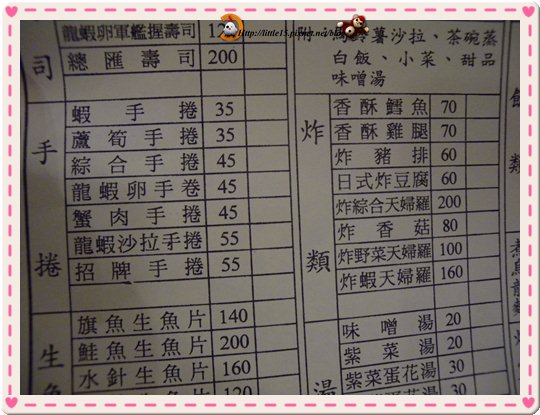 http://little15.pixnet.net/blog
龍蝦卵軍艦握壽司
總匯壽司 200
司
手捲
蝦手捲 35
蘆筍手捲 35
綜合手捲 45
龍蝦卵手卷 45
蟹肉手捲 45
龍蝦沙拉手捲 55
招牌手捲 55
生魚
旗魚生魚片 140
鮭魚生魚片 200
水針生魚片 160
120
附:馬鈴薯沙拉、茶碗蒸
白飯、小菜、甜品
味噌湯
炸類
香酥鱈魚 70
香酥雞腿 70
炸豬排 60
日式炸豆腐 60
炸綜合天婦羅 200
炸香菇 80
炸野菜天婦羅 100
炸蝦天婦羅 160
湯
味噌湯 20
紫菜湯 20
紫菜蛋花湯 30
30
類